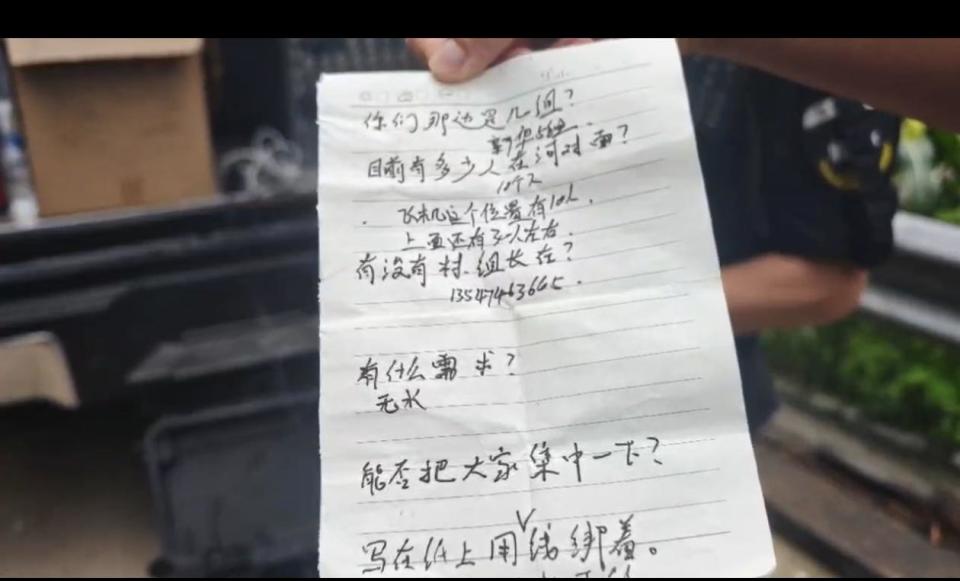 你们那边是几组?
目前有多少人在河对面?
10个人
飞机这个位置有10人.
上面还有 人左右.
有没有村.组长在?
13547463665.
有什么需求?
无水
能否把大家集中一下?
写在纸上用线绑着。